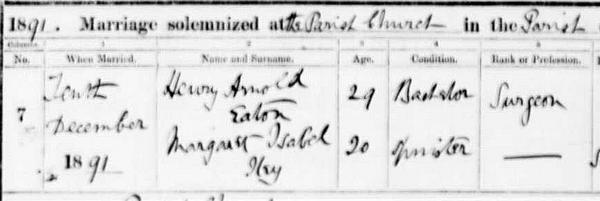 1891. Marriage solemnized at the Parish Church in the Parish
Columns. 1 2 3 4 5
No. When Married. Name and Surname. Age. Condition. Rank or Profession.
7 Tenth December 1891 Henry Arnold Eaton 29 Bachelor Surgeon
Margaret Isabel 20 Spinster —